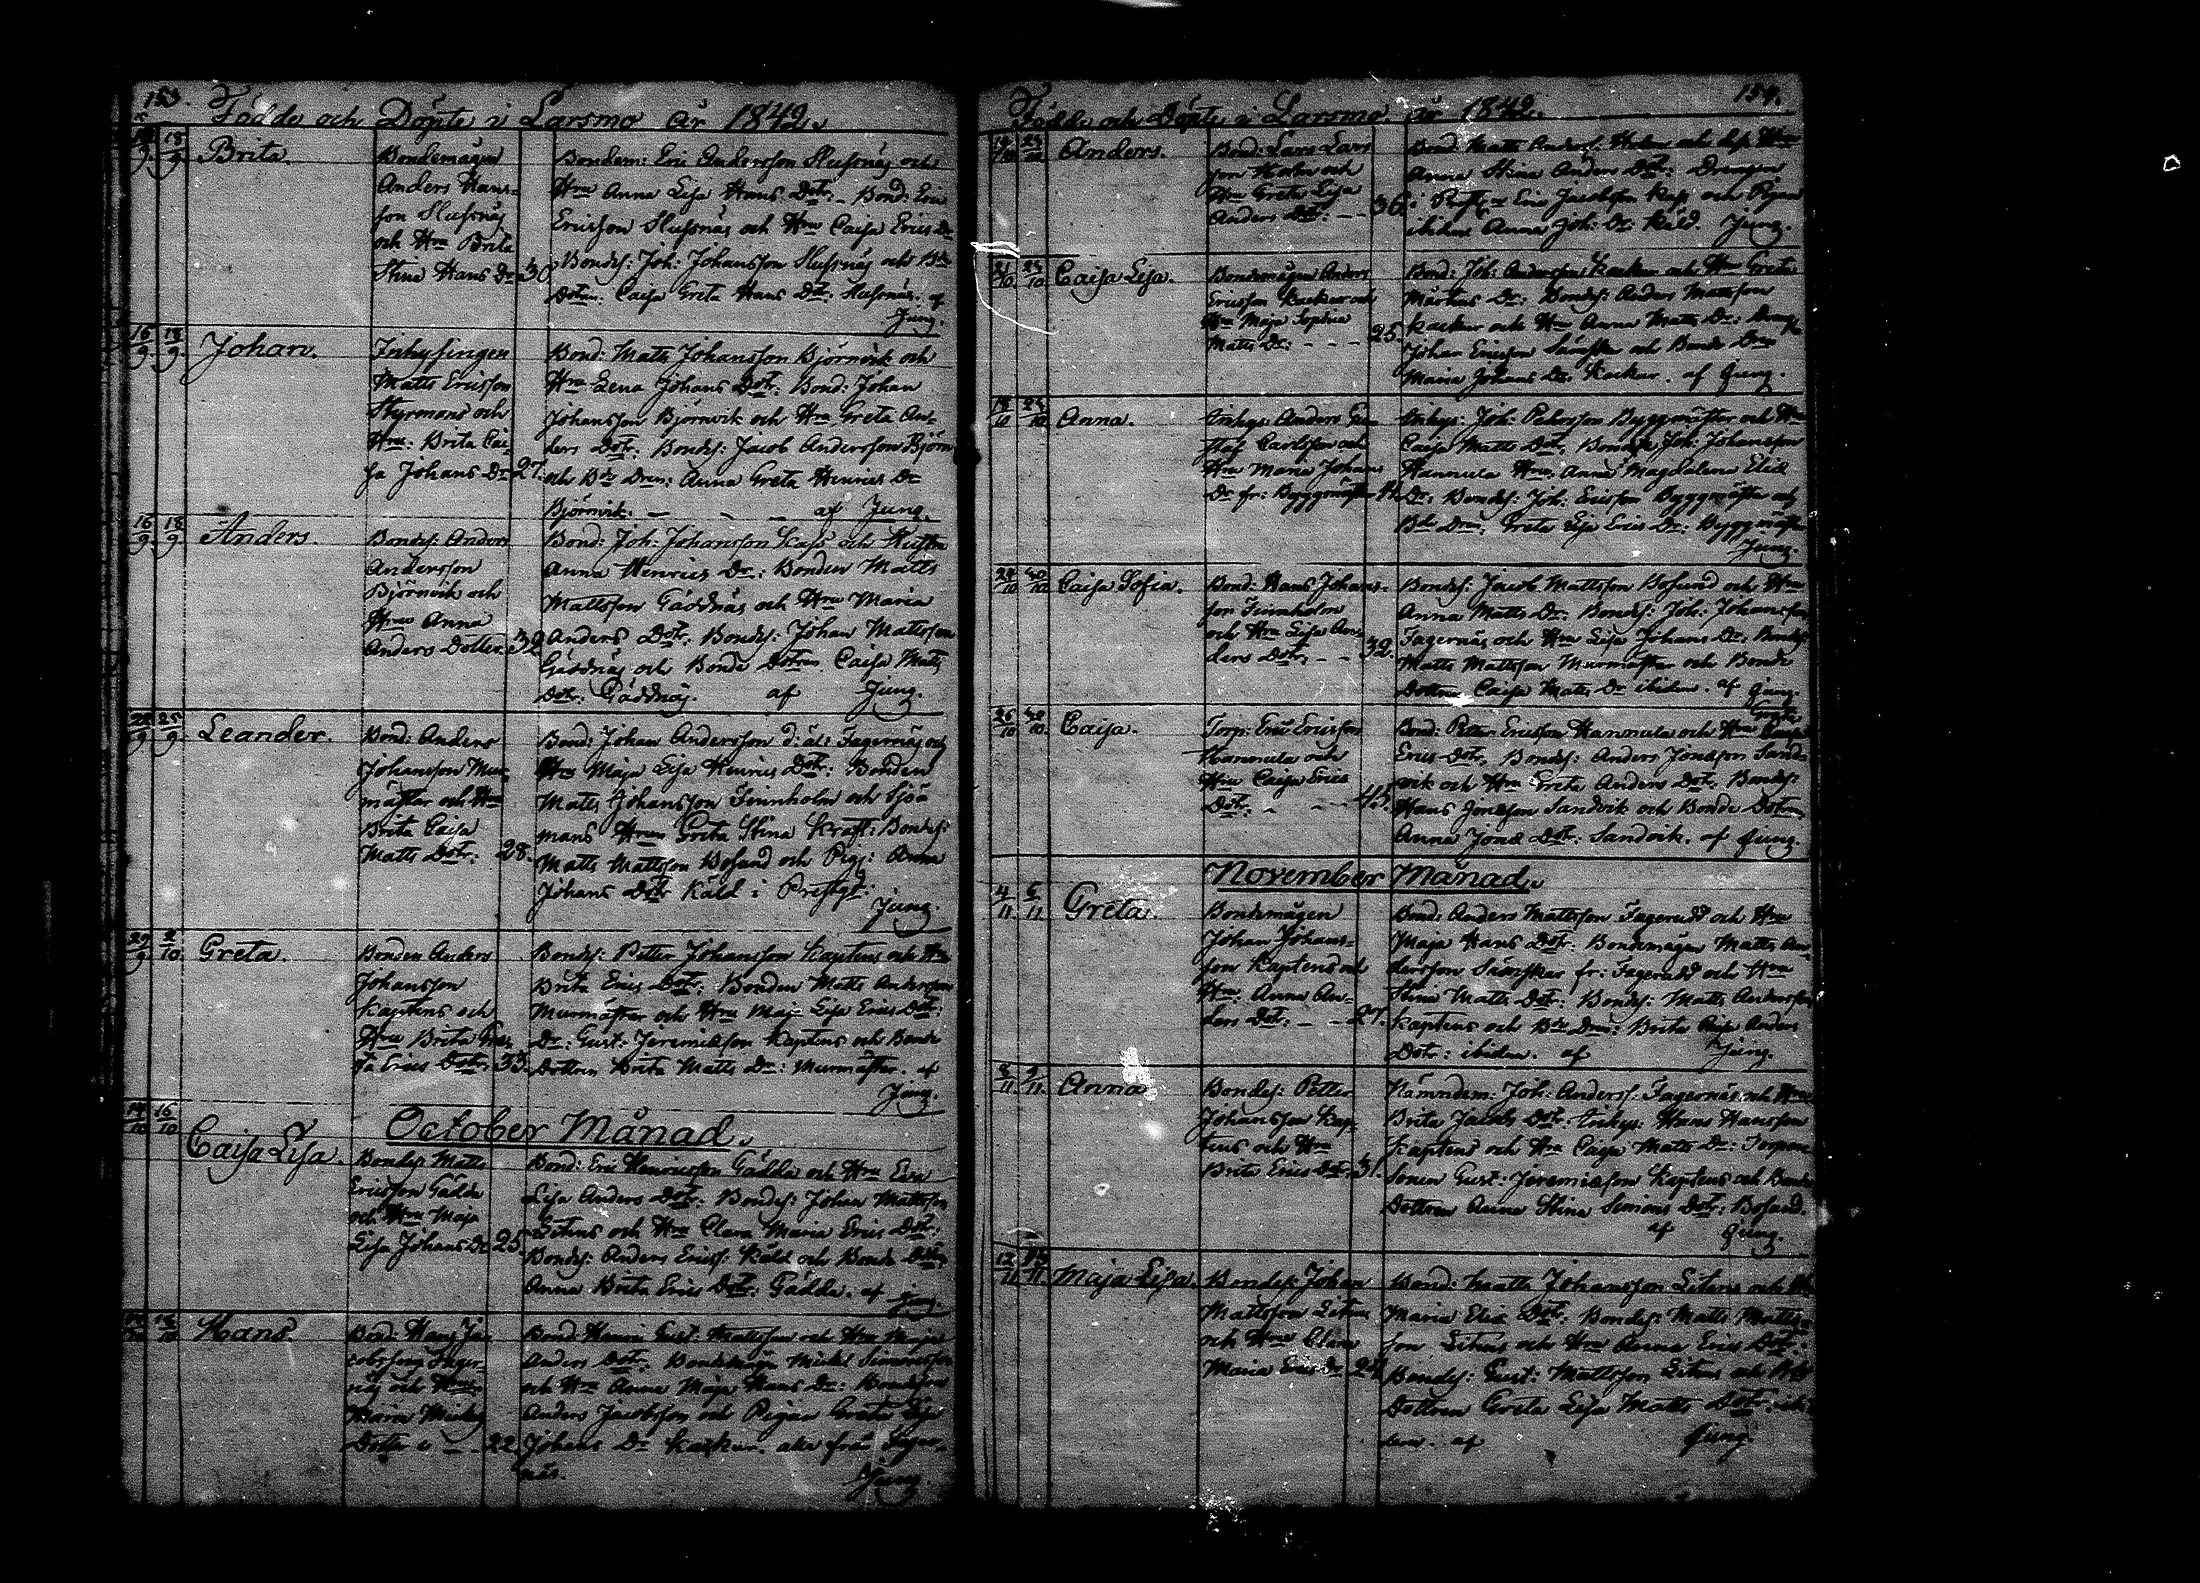 153.
Födde och Döpte i Larsmo år 1842.
18/9 Brita.
Bondemågen
Anders Hans-
son Slussnäs
och Hru Brita
Stina Hans Dr 30
Bondem: Eric Andersson Slussnäs och
Hru Anna Lisa Hans Dotr. Bond: Eric
Ericsson Slussnäs och Hru Caisa Erics Dr
Bondes: Joh: Johansson Slussnäs och Bde
Dotren Caisa Greta Hans Dotr. Slussnäs. af
Jung.
16/9 18/9 Johan.
Inhysingen
Matts Ericsson
Styrmans och
Hru. Brita Cai-
sa Johans Dr 27.
Bond: Matts Johansson Björnvik och
Hru Lena Johans Dotr. Bond: Johan
Johansson Björnvik och Hru Greta An-
ders Dotr. Bondes: Jacob Andersson Björn
och Bde Dren: Anna Greta Henrics Dr
Björnvik. af Jung.
16/9 18/9 Anders.
Bondes: Anders
Andersson
Björnvik och
Hru Anna
Anders Dotter 32
Bond: Joh: Johansson Kass och Hustru
Anna Henrics Dr: Bonden Matts
Mattsson Gäddnäs och Hru Maria
Anders Dotr. Bondes: Johan Mattsson
Gäddnäs och Bonde Dotren Caisa Matts
Dotr. Gäddnäs. af Jung.
22/9 25/9 Leander.
Bond: Anders
Johansson Mur-
mästar och Hru
Brita Caisa
Matts Dotr: 28.
Bond: Johan Andersson d: äl: Fagernäs och
Hru Maja Lisa Henrics Dotr: Bonden
Matts Johansson Finnholm och Sjö-
mans Hrun Greta Stina Kraft: Bondes:
Matts Mattsson Bosund och Pig: Anna
Johans Dotr Käld i Prestgd:
Jung.
29/9 2/10 Greta.
Bonden Anders
Johansson
Kaptens och
Hru Brita Gre-
ta Erics Dotr. 33.
Bondes: Petter Johansson Kaptens och Hru
Brita Erics Dotr: Bonden Matts Andersson
Murmästar och Hru Maja Lisa Erics Dotr:
Dr: Gust: Jeremiasson Kaptens och Bonde
Dottren Brita Matts Dr: Murmästar. af
Jung.
October Månad.
14/10 16/10 Caisa Lisa.
Bondes: Matts
Ericsson Gädda
och Hru Maja
Lisa Johans Dr 25.
Bond: Eric Henricsson Gädda och Hru Eva
Lisa Anders Dotr. Bondes: Johan Mattsson
Litens och Hru Clara Maria Erics Dotr:
Bondes: Anders Ericss: Käld och Bonde Dotr
Anna Brita Erics Dotr: Gädda. af Jung.
16/10 Hans.
Bond: Hans Ja-
cobsson Fager-
näs och Hru
Maria Mickels
Dotter 22
Bond: Henric Gust: Mattsson och Hru Maja
Anders Dotr. Bondemågen Mickel Simonsson
och Hru Anna Maja Hans Dr: Bondeson
Anders Jacobsson och Pigan Greta Lisa
Johans Dr Kackur. alla från Fager-
näs. Jung.
154.
Födde och Döpte i Larsmo år 1842.
Anders.
Bond: Lars Lars-
son Holm och
Hru Greta Lisa
Anders Dotr: 36.
Bond: Matts Anderss: Holm och dess Hru
Anna Stina Anders Dotr: Drengen
Eric Jacobsson Kass och Pigan
ibidem Anna Joh: Dr: Käld. Jung.
21/10 23/10 Caisa Lisa.
Bondemågen Anders
Ericsson Kackur och
Hru Maja Sophia
Matts Dr: 25.
Bond: Joh: Andersson Kackur och Hru Greta
Mårtens Dr: Bondes: Anders Mattsson
Kackur och Hru Anna Matts Dr: Dreng
Johan Ericsson Sämskar och Bonde Dren
Maria Johans Dr: Kackur. af Jung.
Anna.
Inhys: Anders Gu-
staf Carlsson och
Hru Maria Johans
Dr fr: Byggmästar
Inhys: Joh: Pehrsson Byggmästar och Hru
Caisa Matts Dotr. Bondes: Joh: Johansson
Hannula Hru. Anna Magdalena Elias
Dr: Bondes: Joh: Ericsson Byggmästar och
Bde Dren: Greta Lisa Erics Dr: Byggmästar
Jung.
30/10 Caisa Sofia.
Bond: Hans Johans-
son Finnholm
och Hru Lisa An-
ders Dotr. 32.
Bondes: Jacob Mattsson Bosund och Hru
Anna Matts Dr: Bondes: Joh: Johansson
Fagernäs och Hru Lisa Johans Dr: Bondes:
Matts Mattsson Murmästar och Bonde
Dottren Caisa Matts Dr ibidem. af Jung.
26/10 30/10 Caisa.
Torp: Eric Ericsson
Hannula och
Hru Caisa Erics
Dotr. 43.
Bond: Petter Ericsson Hannula och Hru Greta
Erics Dotr. Bondes: Anders Jonasson Sand-
vik och Hru Greta Anders Dotr. Bondes:
Hans Jonasson Sandvik och Bonde Dotren
Anna Jonas Dotr: Sandvik. af Jung.
November Månad.
4/11 6/11 Greta.
Bondemågen
Johan Johans-
son Kaptens och
Hru: Anna An-
ders Dotr: 27.
Bond: Anders Mattsson Fagerudd och Hru
Maja Hans Dotr: Bondemågen Matts An-
dersson Sämskar fr: Fagerudd och Hru
Stina Matts Dotr: Bondes: Matts Andersson
Kaptens och Bde Dren: Brita Caisa Anders
Dotr: ibidem. af Jung.
8/11 9/11 Anna.
Bondes: Petter
Johansson Kap-
tens och Hru
Brita Erics Dotr. 31.
Nämndem: Joh: Anderss: Fagernäs och Hru
Brita Jacobs Dotr: Inhys: Hans Hansson
Kaptens och Hru Caisa Matts Dr: Torpare
sonen Gust: Jeremiasson Kaptens och Bonde
Dottren Anna Stina Simons Dotr: Bosund.
af Jung.
12/11 Maja Lisa.
Bondes: Johan
Mattsson Litens
och Hru Clara
Maria Erics Dr 24
Bond: Matts Johansson Litens och Hru
Maria Elis Dotr. Bondes: Matts Matts-
son Litens och Hru Anna Erics Dotr:
Bondes: Gust: Mattsson Litens och Bde
Dottren Greta Lisa Matts Dotr. ibi-
dem. af Jung.